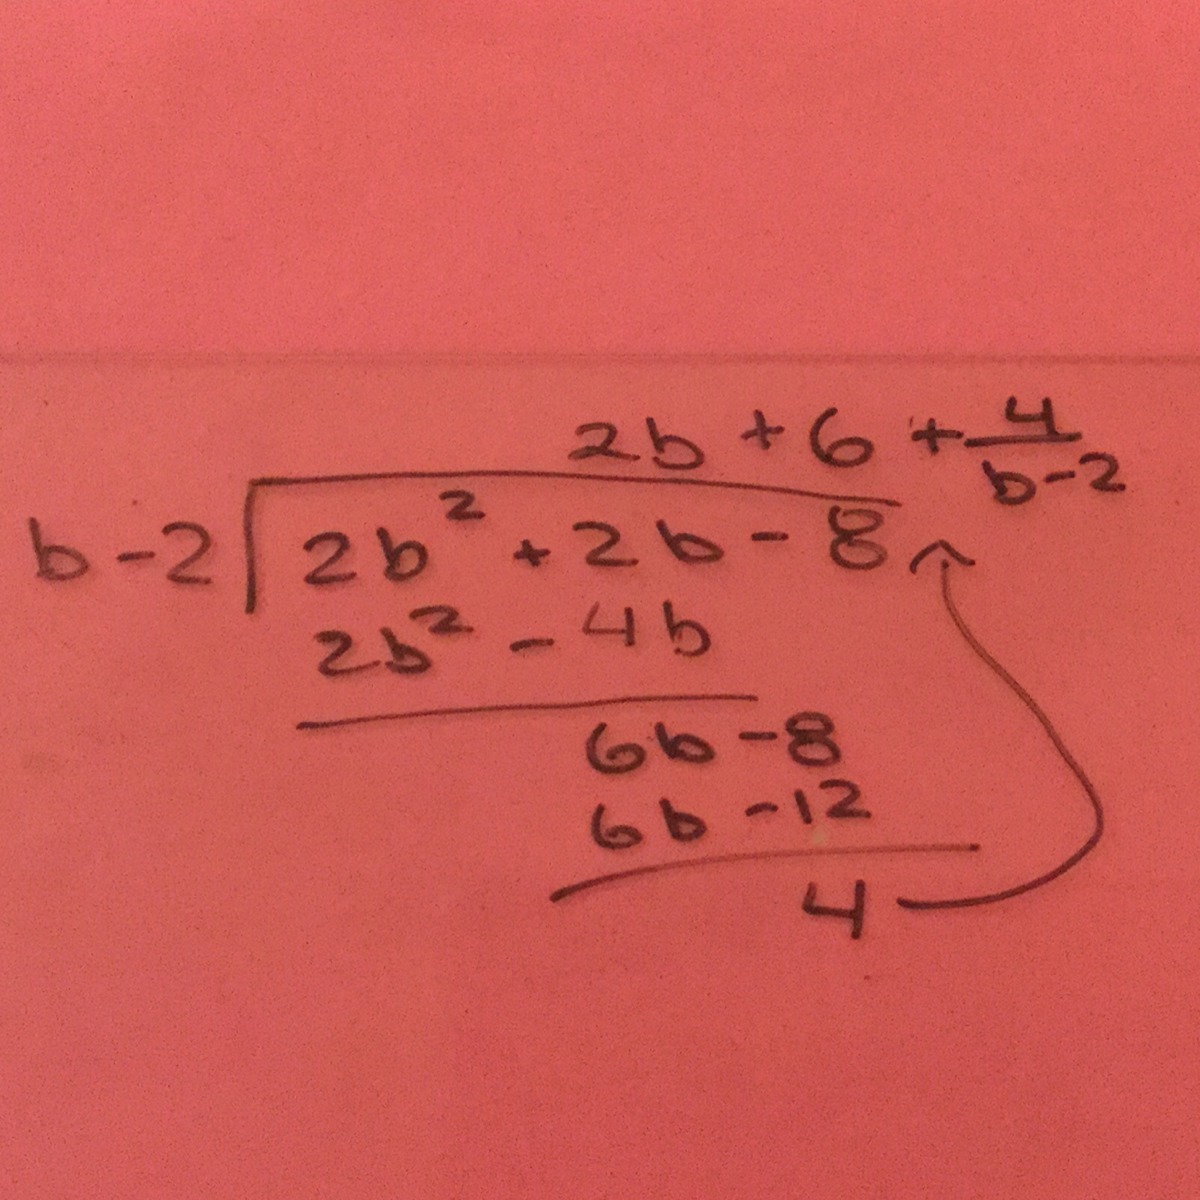 2b + 6 + 4/(b-2)
b-2 2b² + 2b - 8
2b² - 4b
6b - 8
6b - 12
4